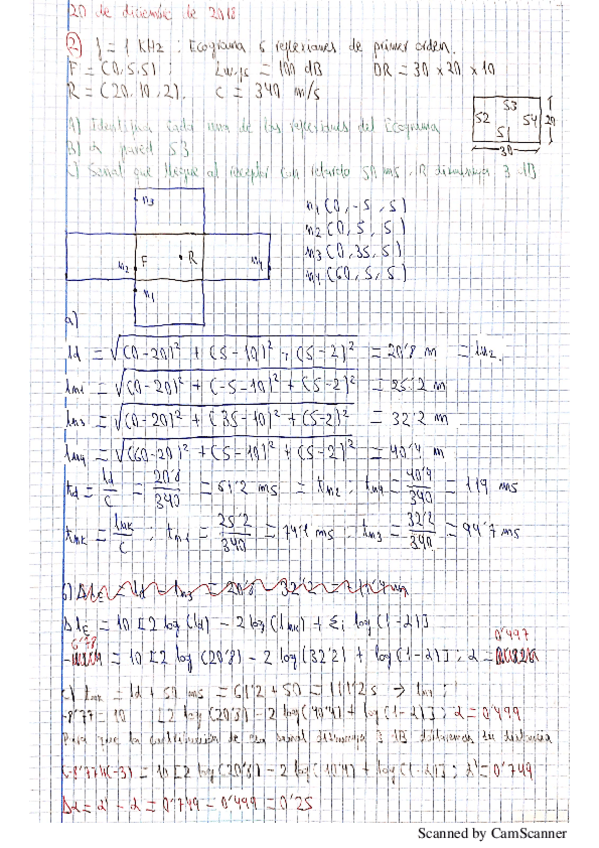 20 de diciembre de 2018
② f = 1 KHz : Ecograma 6 reflexiones de primer orden.
F = (0,5,5) ; Lw,fs = 100 dB DR = 30 x 20 x 10
R = (20, 10, 2). c = 340 m/s
S3
S2 S4 20
S1
30
A) Identifica cada una de las reflexiones del Ecograma
B) α pared S3
C) Señal que llegue al receptor con retardo 50 ms, disminuya 3 dB
m3
m1 (0, -5, 5)
m2 (0, 5, 5)
m3 (0, 35, 5)
m4 (60, 5, 5)
m2 F R m4
m1
a)
ld = √(0-20)² + (5-10)² + (5-2)² = 20'8 m = lm2.
lm1 = √(0-20)² + (-5-10)² + (5-2)² = 25'2 m
lm3 = √(0-20)² + (35-10)² + (5-2)² = 32'2 m
lm4 = √(60-20)² + (5-10)² + (5-2)² = 40'4 m
td = ld/c = 20'8/340 = 61'2 ms = tm2 ; tm4 = 40'4/340 = 119 ms
tmk = lmk/c ; tm1 = 25'2/340 = 74'1 ms ; tm3 = 32'2/340 = 94'7 ms
b)
ΔLE = 10 [2 log(ld) - 2 log(lmk) + Σi log(1-α)]
6'78 0'497
- = 10 [2 log(20'8) - 2 log(32'2) + log(1-α)] ; α =
c) tmk = td + 50 ms = 61'2 + 50 = 111'2 s → lm4 ;
-8'77 = 10 [2 log(20'8) - 2 log(40'4) + log(1-α)] ; α = 0'499
Para que la contribución de la señal disminuya 3 dB distancia
-8'77+(-3) = 10 [2 log(20'8) - 2 log(40'4) + log(1-α)] ; α' = 0'749
Δα = α' - α = 0'749 - 0'499 = 0'25
Scanned by CamScanner